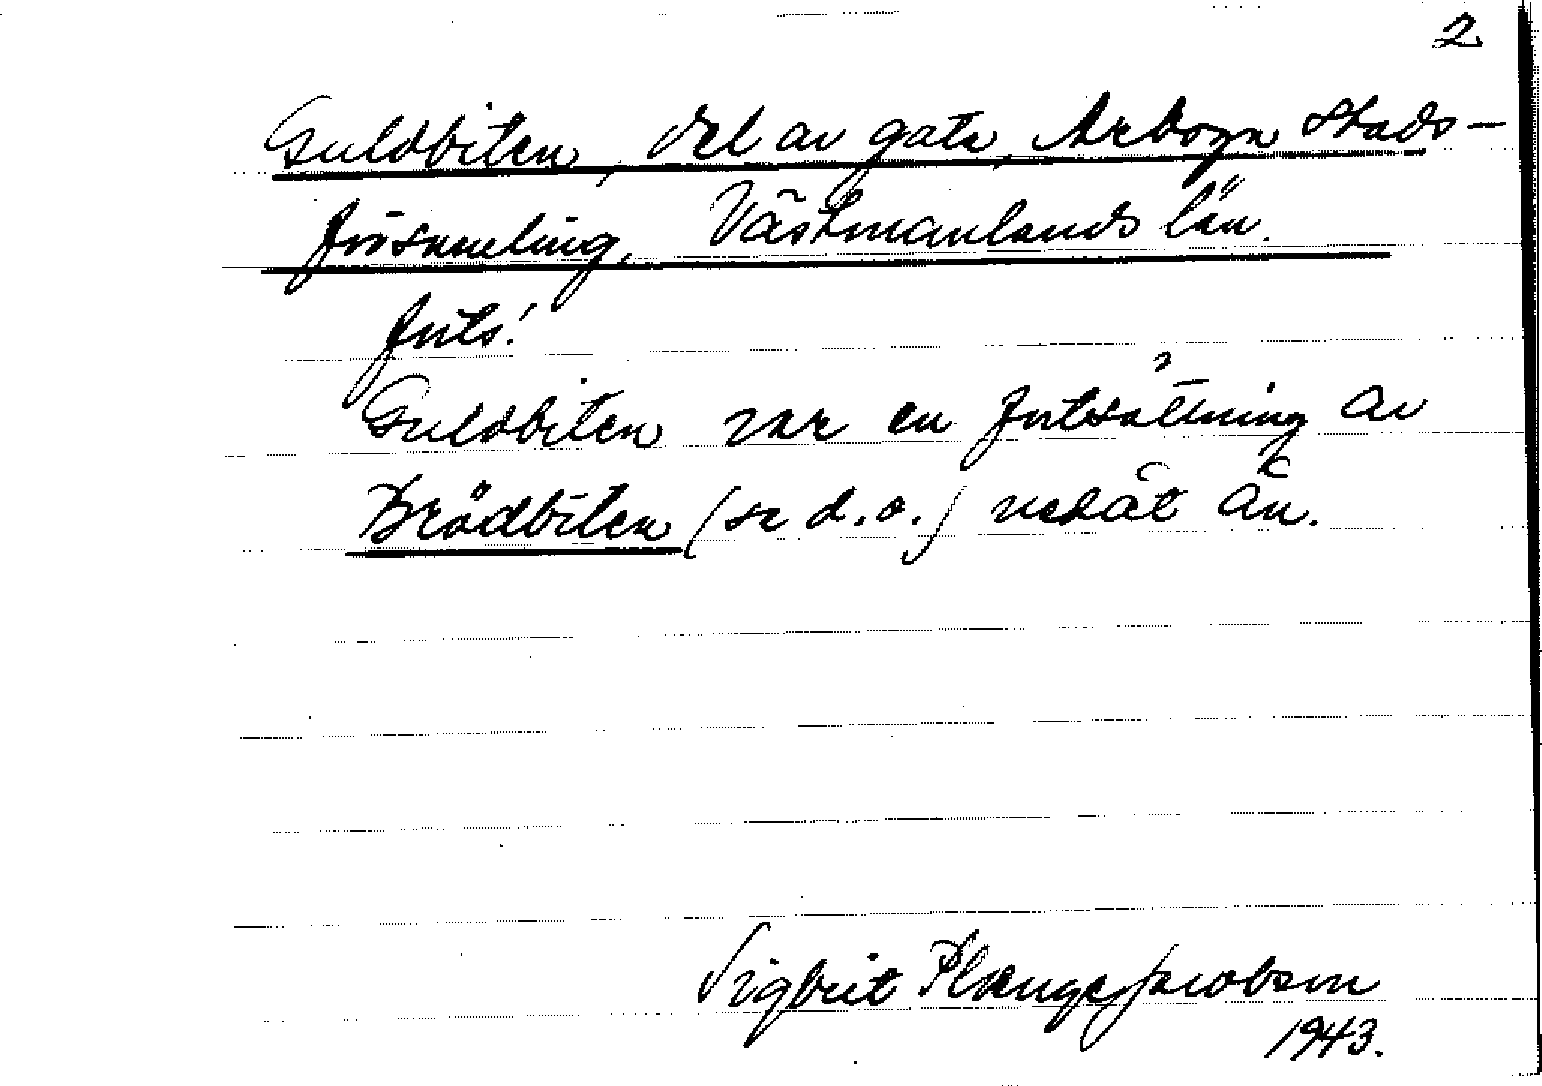 2
Guldbiten, del av gata, Arboga Stads-
församling, Västmanlands län.
forts!
Guldbiten var en fortsättning av
Brödbiten (se d.o.) nedåt ån.
Sigbrit Plænge Jacobson
1943.